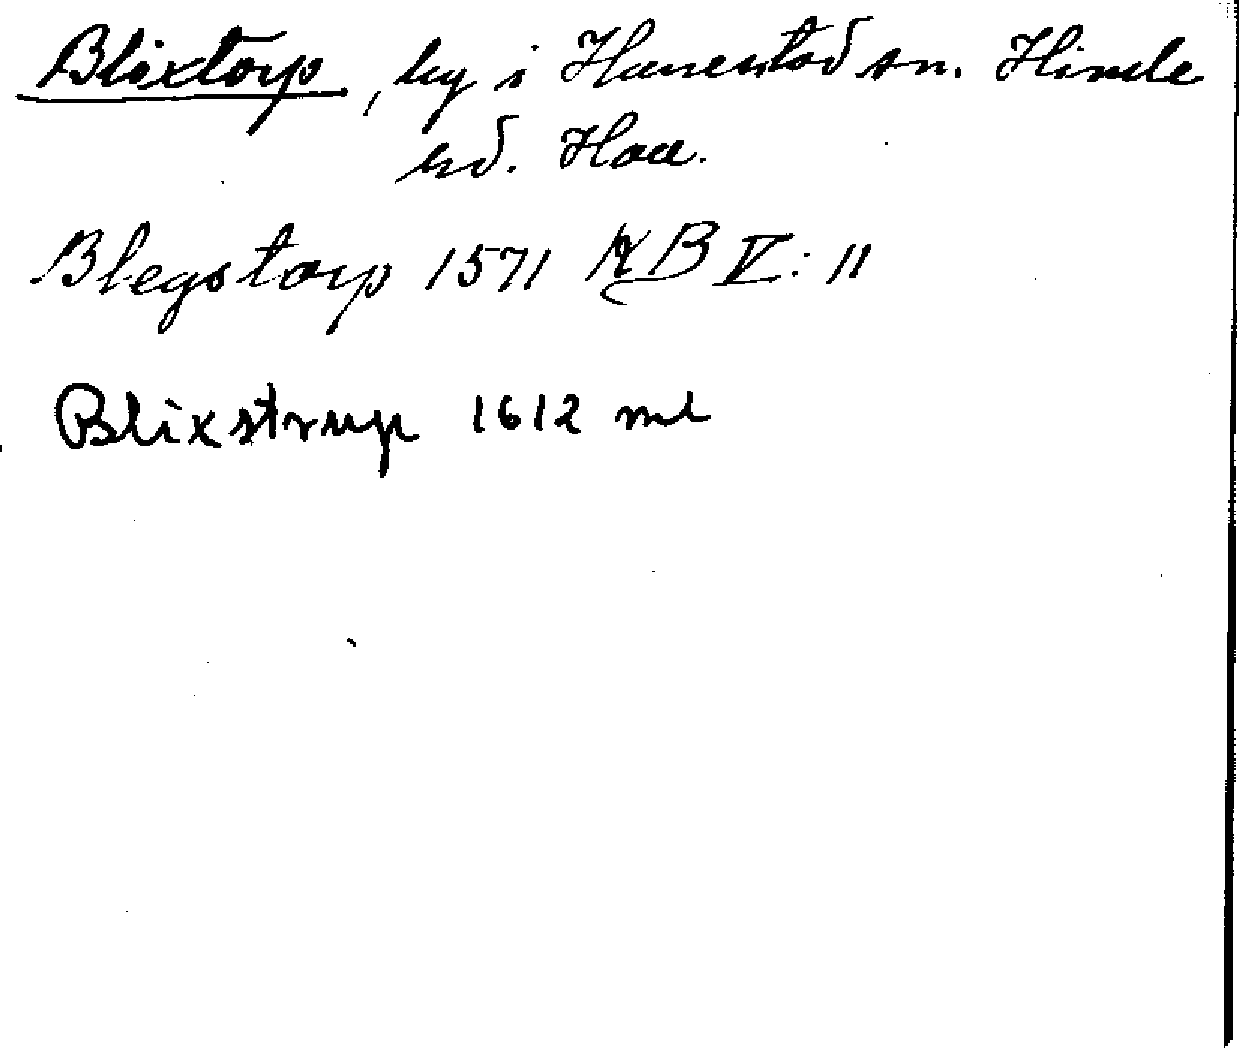 Blixtorp, by i Hanestad sn. Himle
hd. Hall.
Blegstorp 1571 KB V: 11
Blixstrup 1612 ml